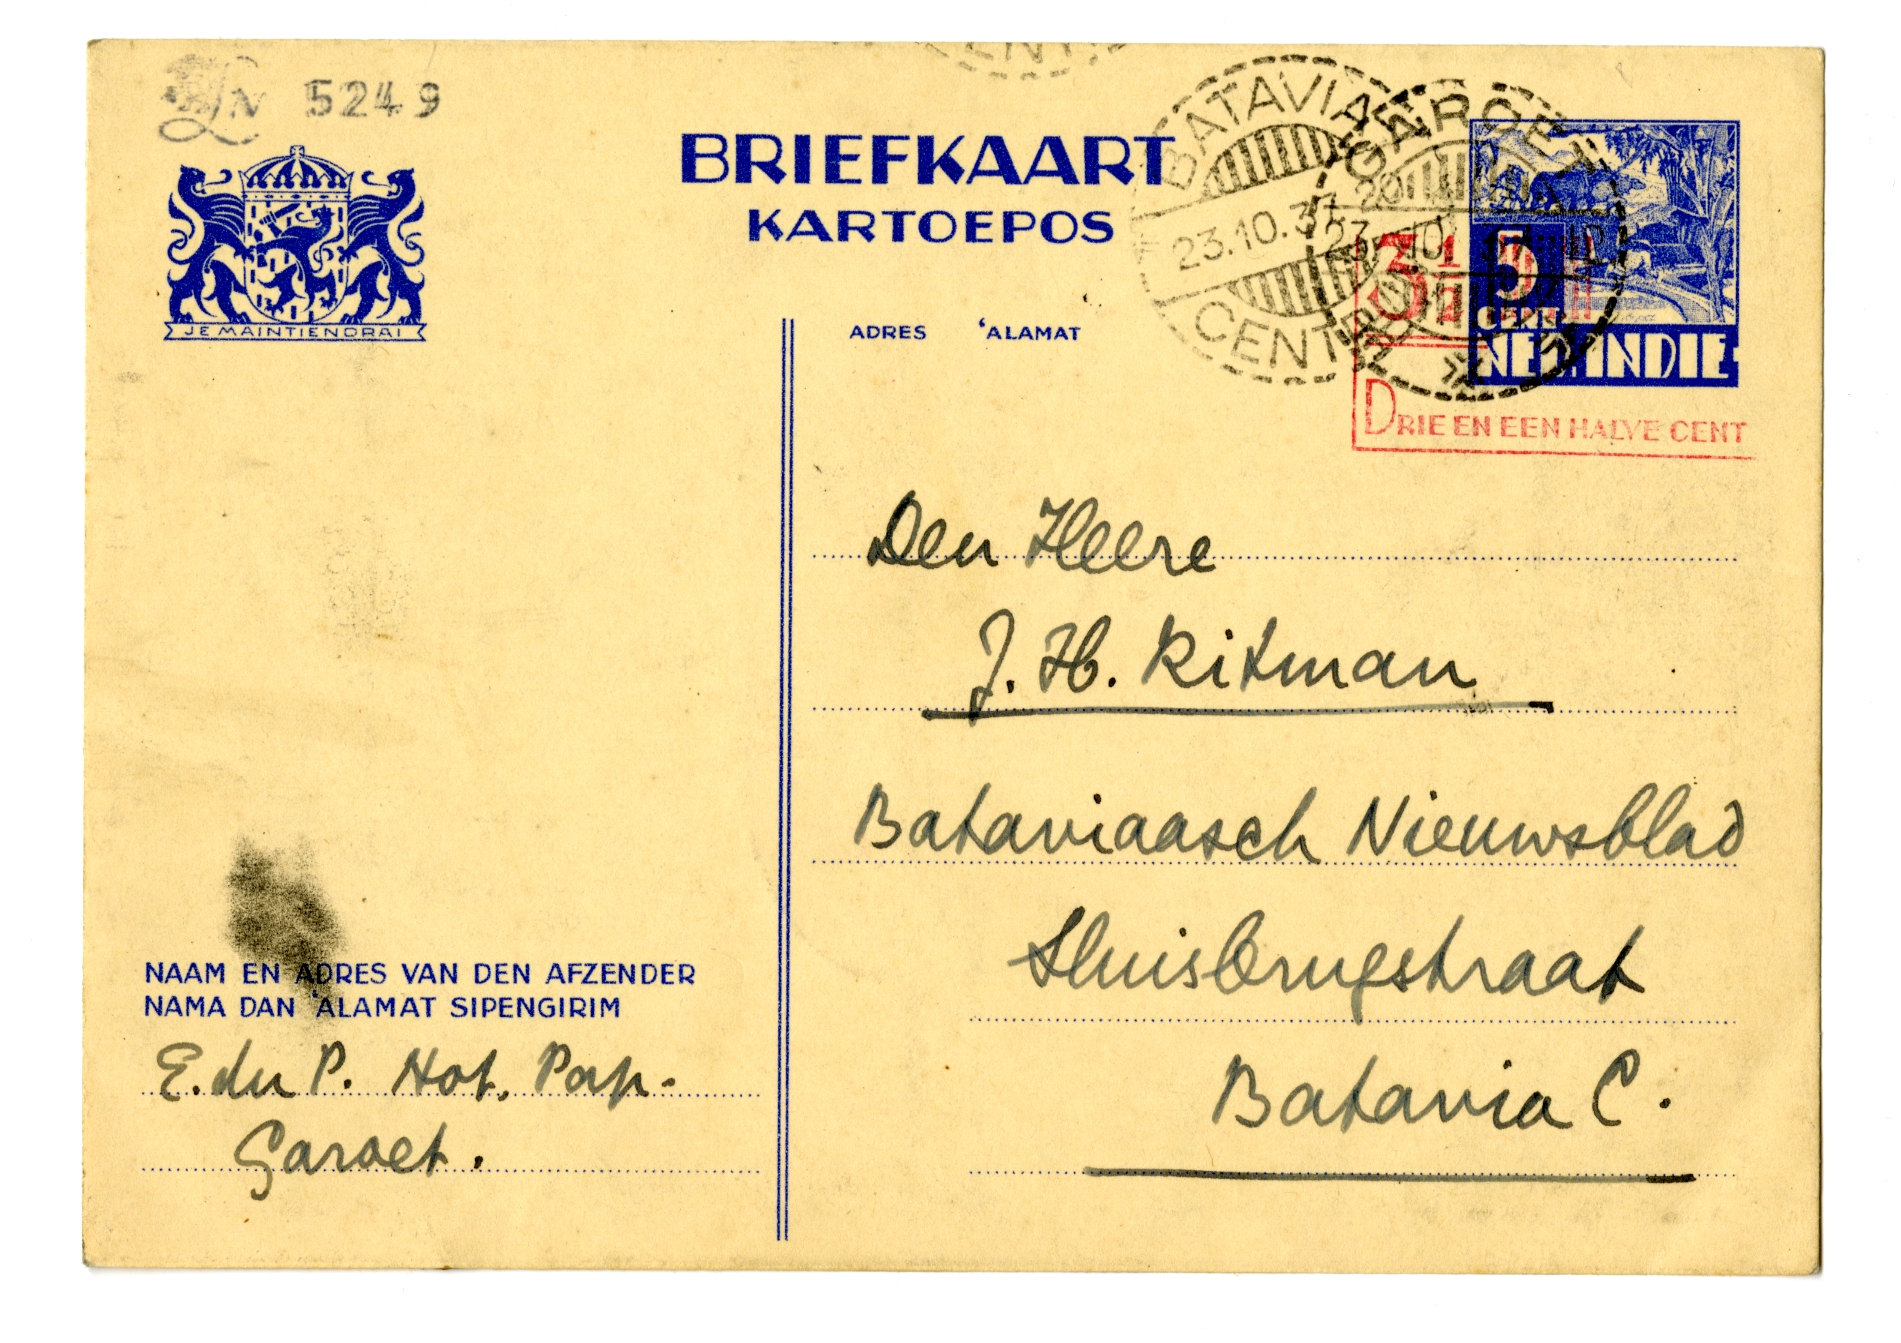 5249
BRIEFKAART
KARTOEPOS
JE MAINTIENDRAI
ADRES 'ALAMAT
BATAVIA
23.10.37
CENTRUM
GAROET
3 1/2
5
CENT
NED. INDIE
DRIE EN EEN HALVE CENT
Den Heere
J. H. Ritman
Bataviaasch Nieuwsblad
Sluisbrugstraat
Batavia C.
NAAM EN ADRES VAN DEN AFZENDER
NAMA DAN 'ALAMAT SIPENGIRIM
E. du P. Hot. Pap.
Garoet.